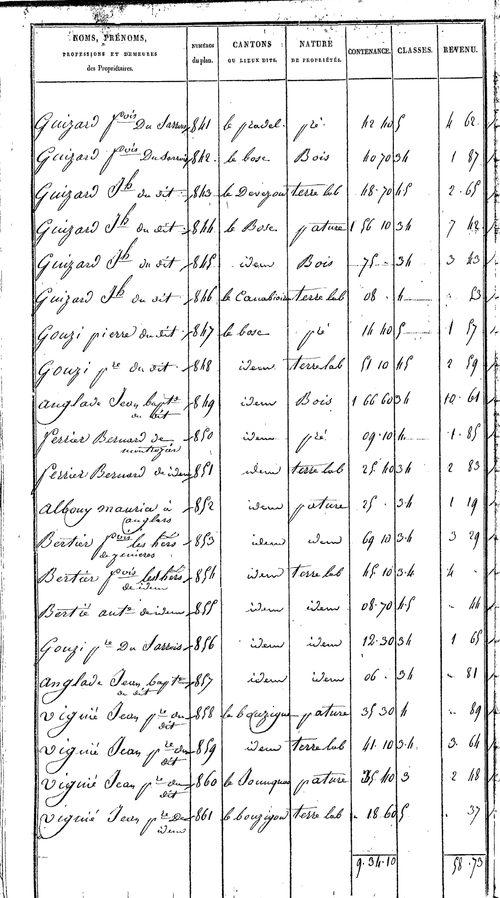 NOMS, PRÉNOMS, PROFESSIONS ET DEMEURES des Propriétaires. NUMÉROS du plan. CANTONS OU LIEUX DITS. NATURE DE PROPRIÉTÉS. CONTENANCE. CLASSES. REVENU.
Guizard f.ois Du Sarrois 841 le pradel pré 42 40 5 4 62
Guizard f.ois Du Sarrois 842 le bosc Bois 40 70 34 1 87
Guizard Jh du dit 843 le Devezou terre lab 48.70 45 2.65
Guizard Jh du dit 844 le Bosc pature 1 56 10 34 7 42
Guizard Jh du dit 845 idem Bois 75 34 3 43
Guizard Jh du dit 846 terre lab 08 4 53
Gouzi pierre du dit 847 le bosc pré 14 40 5 1 57
Gouzi p.re du dit 848 idem terre lab 51 10 45 2 59
anglade Jean bapt.e du dit 849 idem Bois 1 66 60 34 10.61
ferrier Bernard de 850 idem pré 09.10 4 1.85
ferrier Bernard de idem 851 idem terre lab 25 40 34 2 83
albouy maurice à anglars 852 idem pature 25 34 1 19
Bertier f.ois les hers de genieres 853 idem idem 69 10 34 3 29
Bertier f.ois les hers de idem 854 idem terre lab 45.10 3.4 4
Bertié ant.e de idem 855 idem idem 08.70 45 44
Gouzi p.re Du Sarrois 856 idem idem 12.30 34 1 65
anglade Jean bapt.e du dit 857 idem idem 06 34 81
viguié Jean p.re du dit 858 la bouzigue pature 35 30 4 89
viguié Jean p.re du dit 859 idem terre lab 41.10 3.4 3 64
viguié Jean p.re du dit 860 pature 40 3 2 48
viguié Jean p.re De idem 861 le bouzigou terre lab 18.60 5 37
9.34.10 58.73